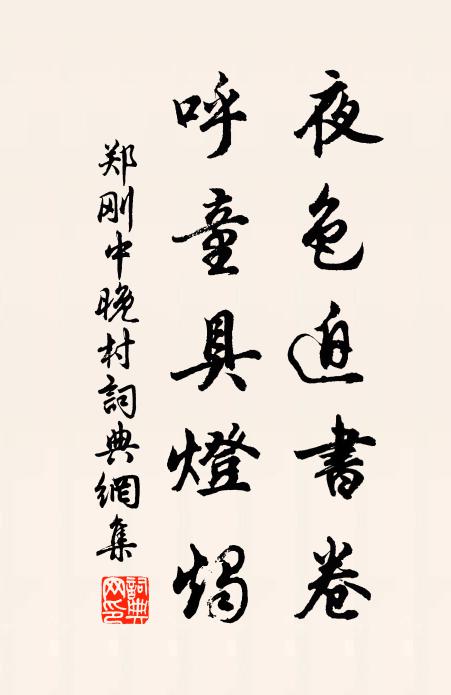 夜色迫書卷
呼童具燈燭
郑刚中晚村詞典網集
詞典网印